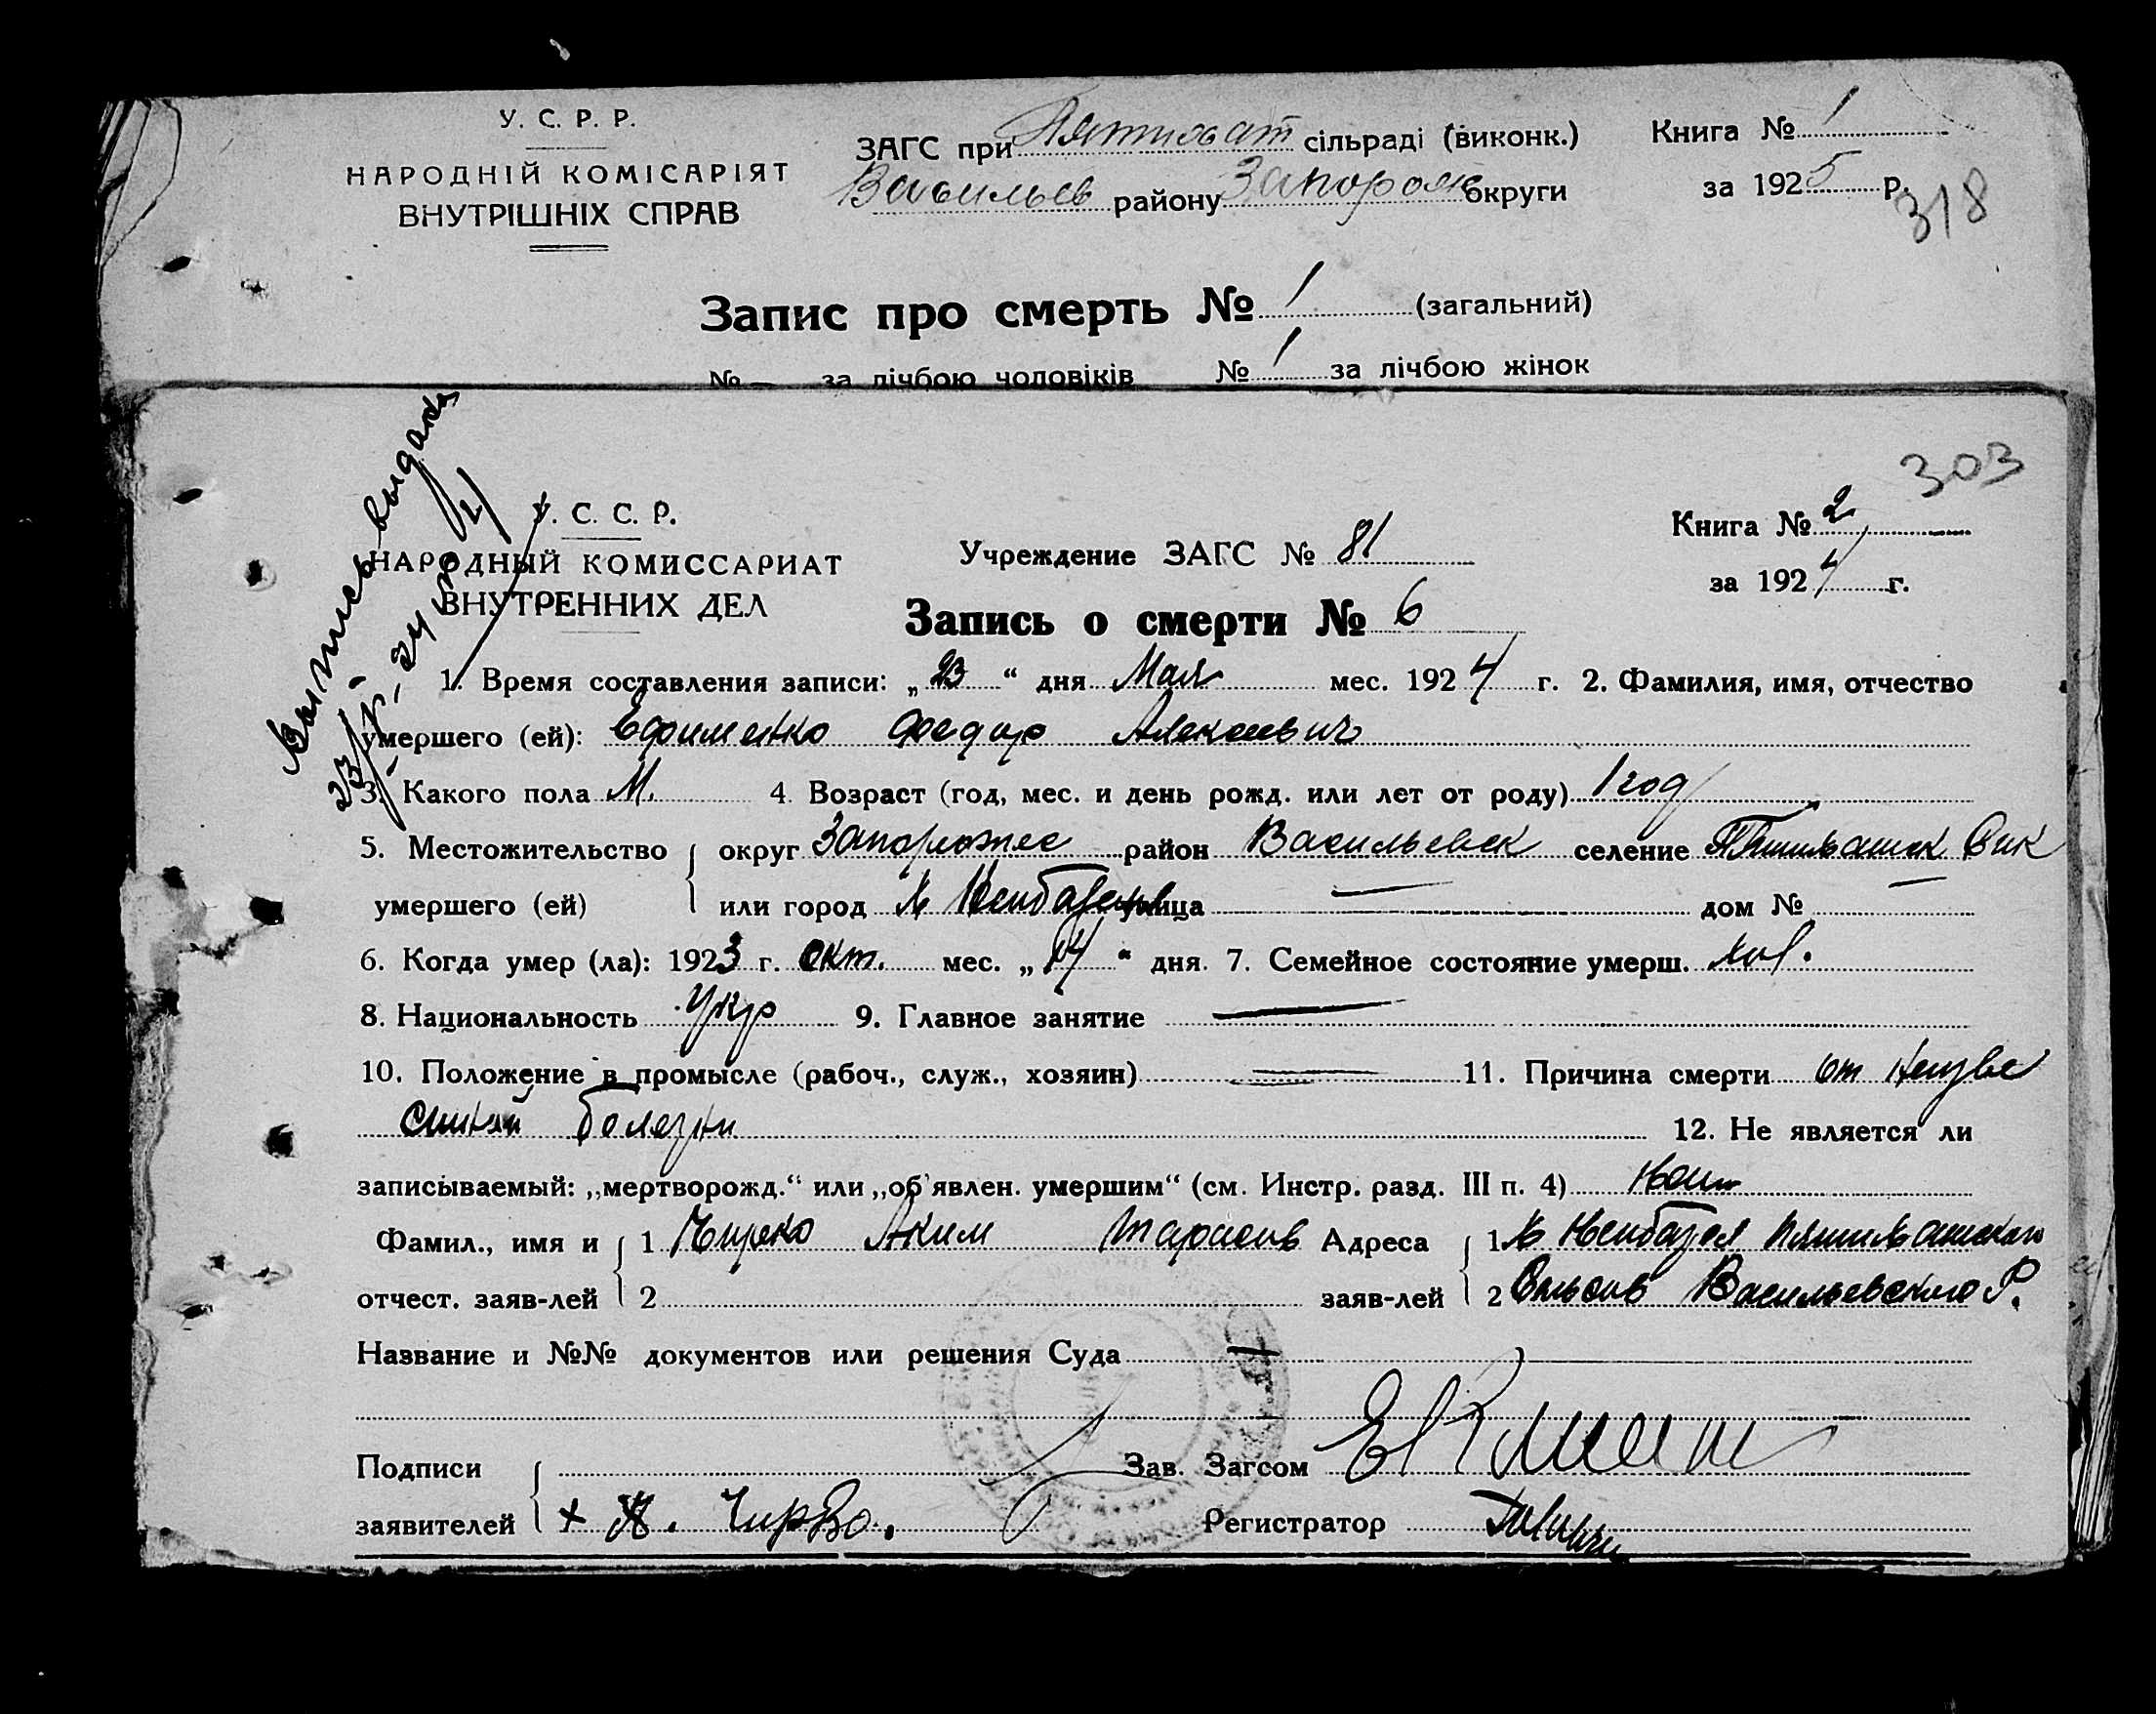 У. С. Р. Р.
НАРОДНІЙ КОМІСАРІЯТ
ВНУТРІШНІХ СПРАВ
ЗАГС при Пятихат сільраді (виконк.)
Васильев району Запорож округи
Книга № 1
за 1925 р.
318
Запис про смерть № 1 (загальний)
№ — за лічбою чоловіків № 1 за лічбою жінок
303
Выпись выдана
У. С. С. Р.
НАРОДНЫЙ КОМИССАРИАТ
ВНУТРЕННИХ ДЕЛ
Учреждение ЗАГС № 81
Книга № 2
за 1924 г.
Запись о смерти № 6
1. Время составления записи: „23“ дня Мая мес. 1924 г. 2. Фамилия, имя, отчество
умершего (ей): Ефименко Федир Алексеевич
3. Какого пола М. 4. Возраст (год, мес. и день рожд. или лет от роду) 1 год
5. Местожительство округ Запорожье район Васильевск селение
умершего (ей) или город улица — дом № —
6. Когда умер (ла): 1923 г. окт. мес. „14“ дня. 7. Семейное состояние умерш. хол.
8. Национальность Укр 9. Главное занятие —
10. Положение в промысле (рабоч., служ., хозяин) — 11. Причина смерти от Неизве
стной болезни 12. Не является ли
записываемый: „мертворожд.“ или „об'явлен. умершим“ (см. Инстр. разд. III п. 4)
Фамил., имя и 1 Аким Тарасов Адреса 1
отчест. заяв-лей 2 заяв-лей 2 Васильевского Р.
Название и №№ документов или решения Суда
Подписи Зав. Загсом
заявителей + А. Регистратор